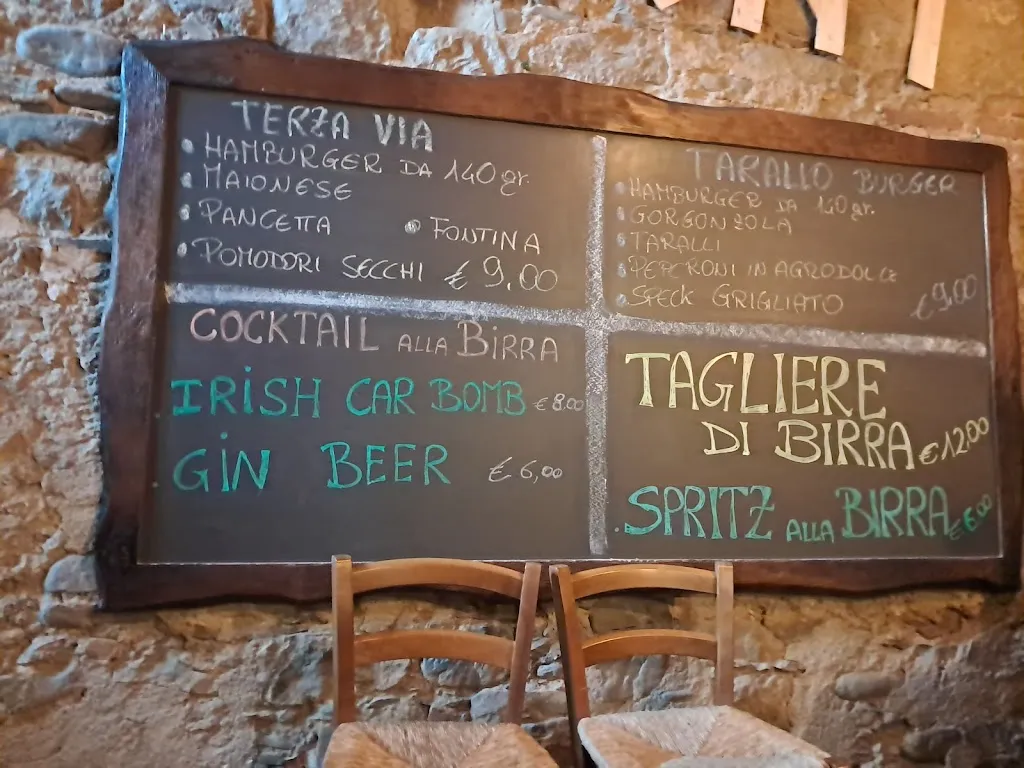 TERZA VIA
• HAMBURGER DA 140 gr.
• MAIONESE
• PANCETTA • FONTINA
• POMODORI SECCHI € 9.00
TARALLO BURGER
• HAMBURGER DA 140 gr.
• GORGONZOLA
• TARALLI
• PEPERONI IN AGRODOLCE
• SPECK GRIGLIATO € 9,00
COCKTAIL ALLA BIRRA
IRISH CAR BOMB € 8.00
GIN BEER € 6,00
TAGLIERE
DI BIRRA € 12,00
SPRITZ ALLA BIRRA € 6.00